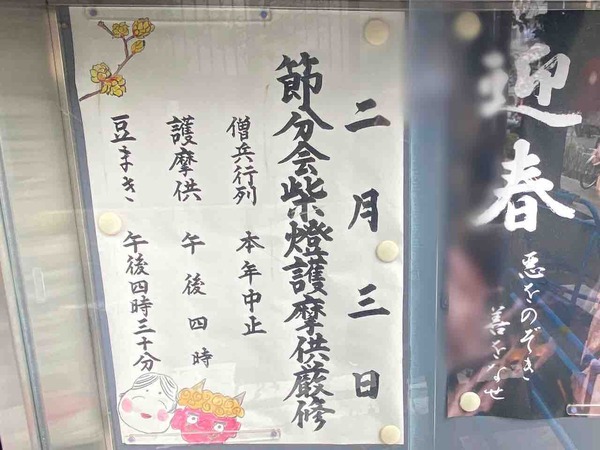 迎春
悪をのぞき
善をなせ
二月三日
節分会柴燈護摩供厳修
僧兵行列 本年中止
護摩供 午後四時
豆まき 午後四時三十分